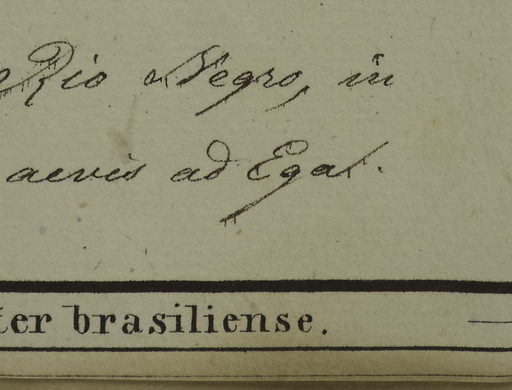 Rio Negro, in
aevis ad Ega.
ter brasiliense.